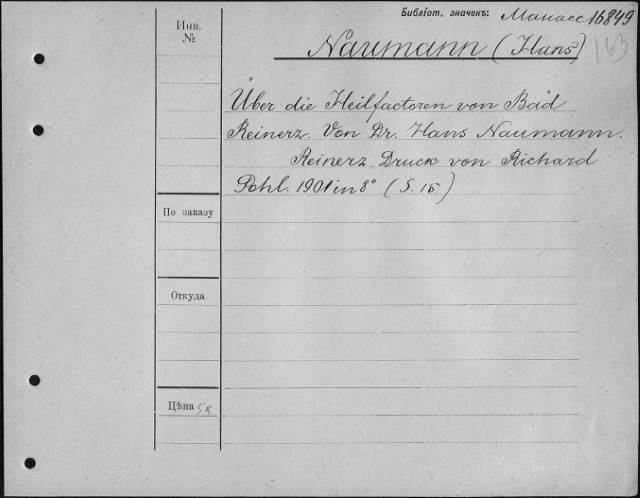 Библіот. значекъ: Манасс 16849
Инв.
№
Naumann (Hans)
163
Über die Heilfactoren von Bad
Reinerz. Von Dr. Hans Naumann.
Reinerz. Druck von Richard
Pohl. 1901 in 8° (S. 15)
По заказу
Откуда
Цѣна 5к